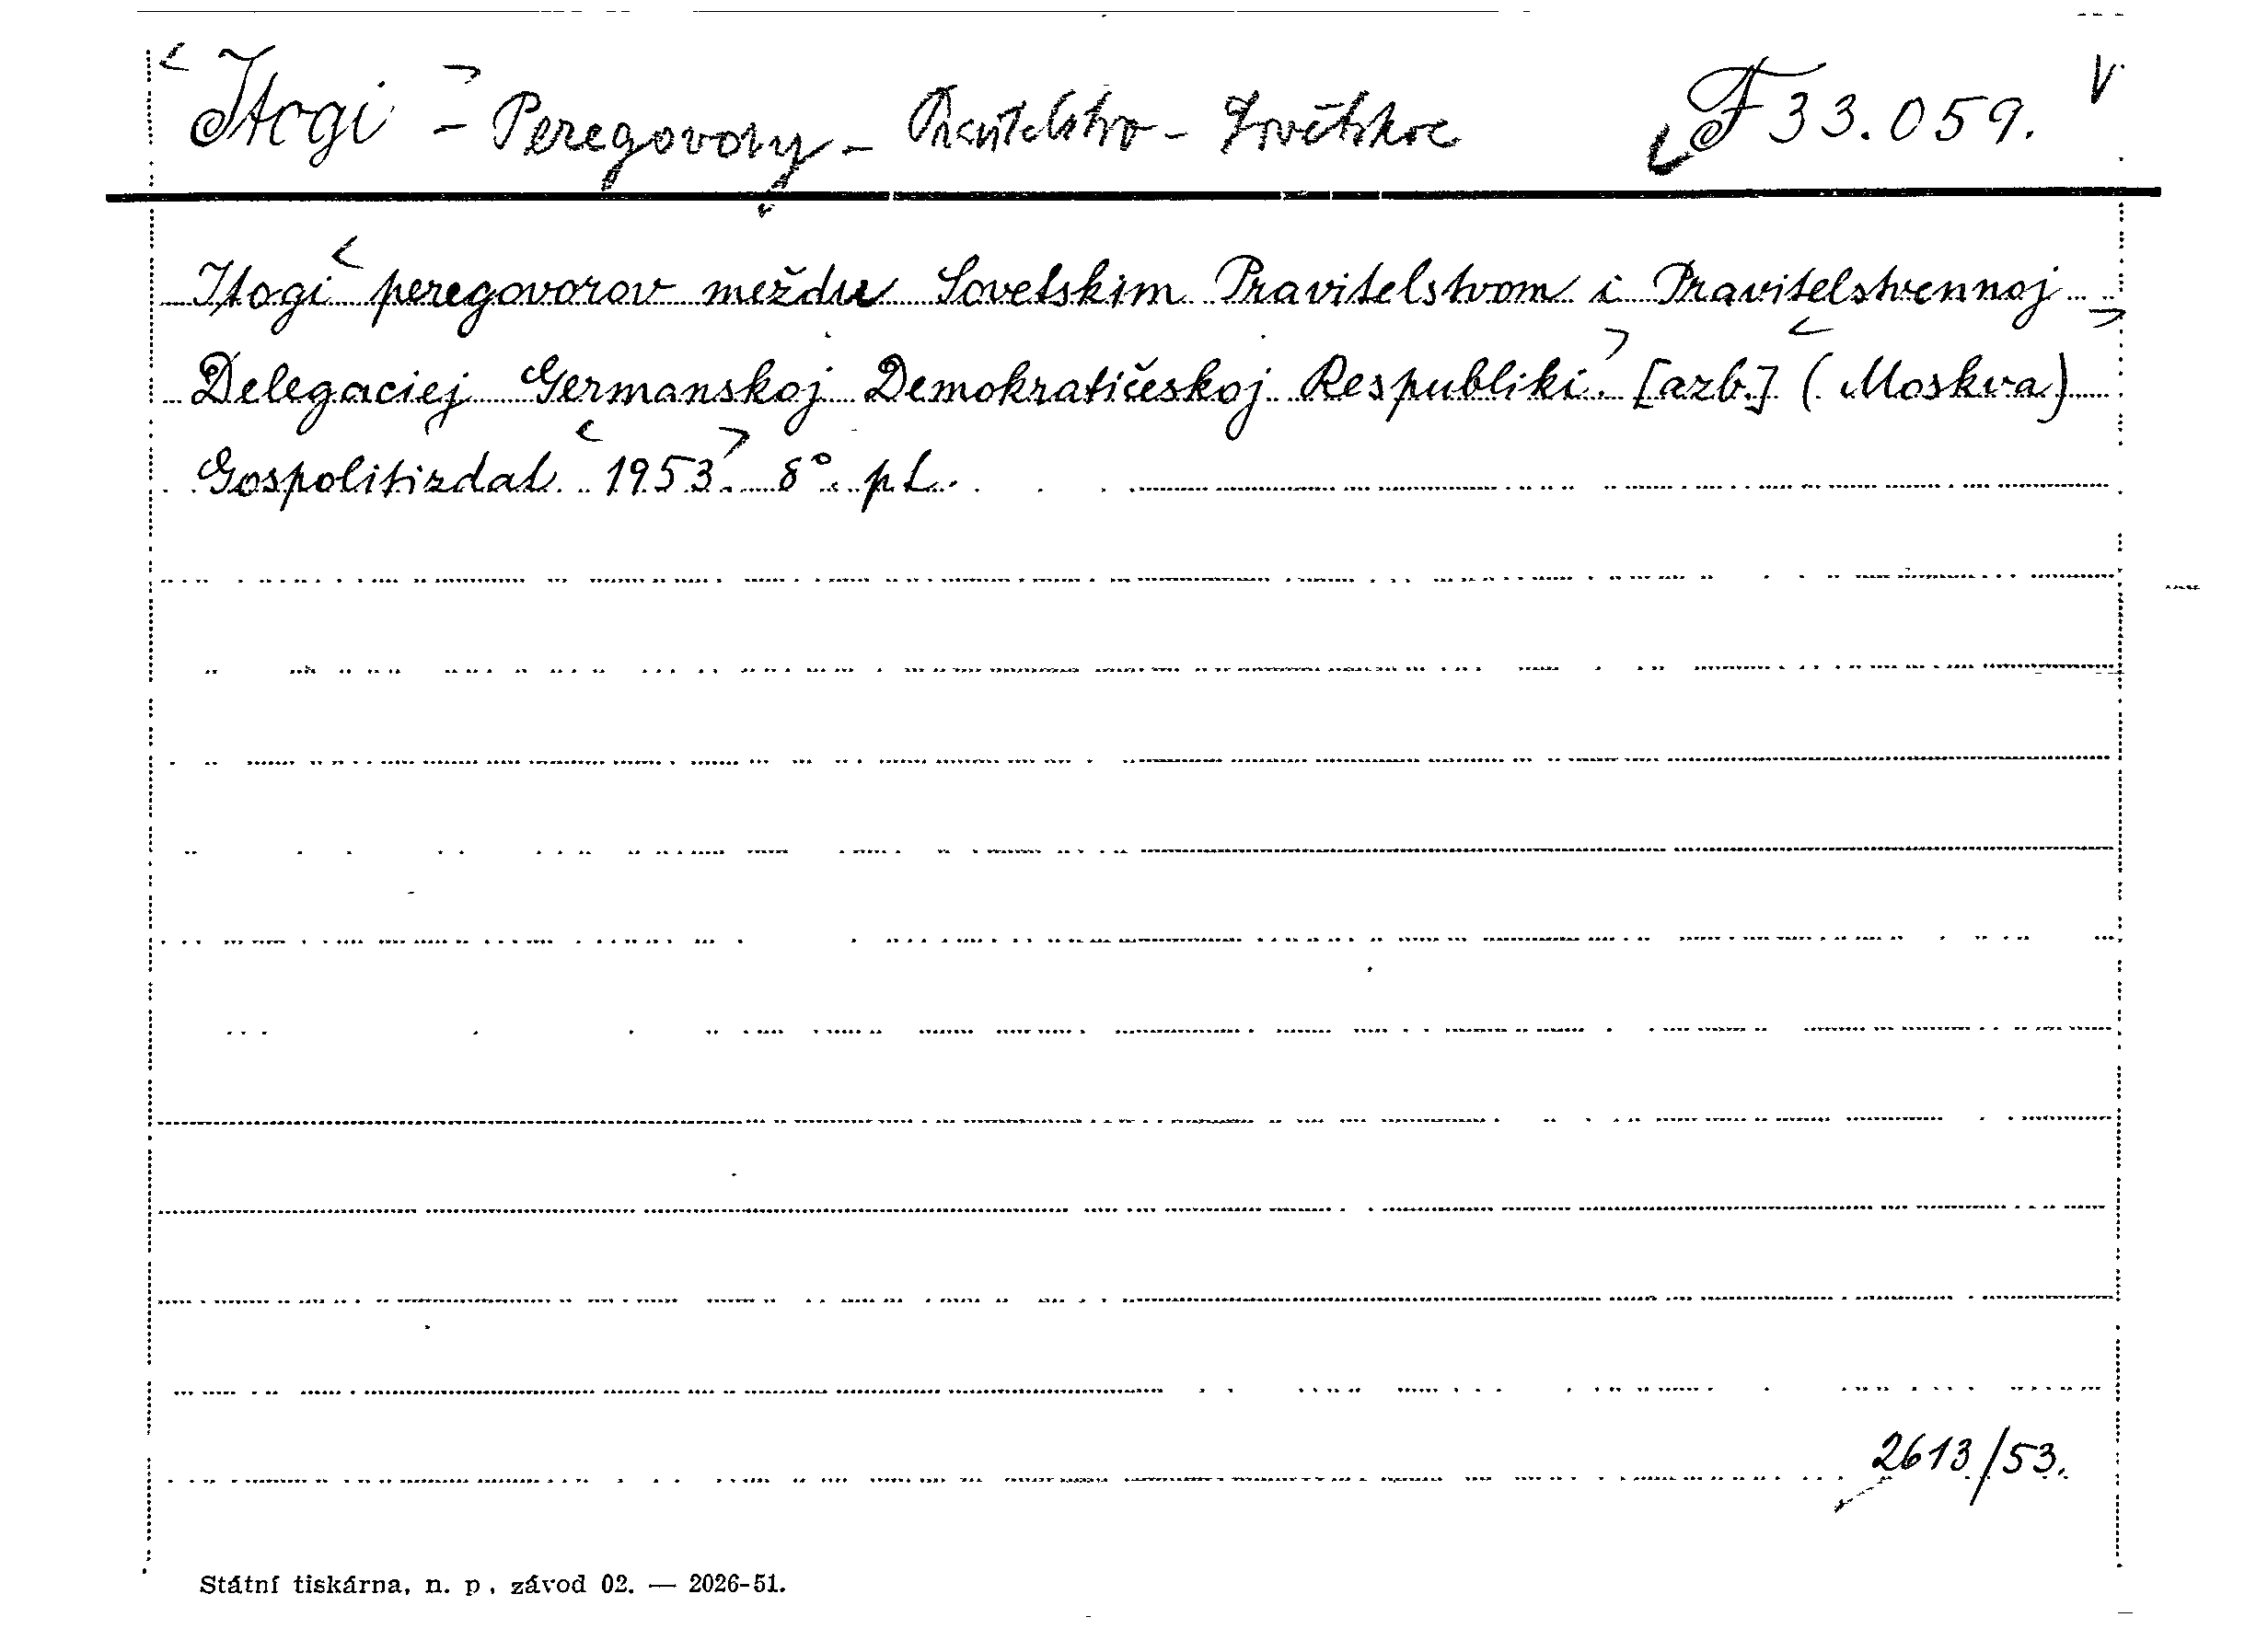 Itogi - Peregovory - Pravitelstvo - Sovětskoe F 33.059.
Itogi peregovorov meždu Sovetskim Pravitelstvom i Pravitelstvennoj
Delegaciej Germanskoj Demokratičeskoj Respubliki. [azb.] (Moskva)
Gospolitizdat 1953. 8°. pl.
2613/53.
Státní tiskárna, n. p. závod 02. — 2026-51.